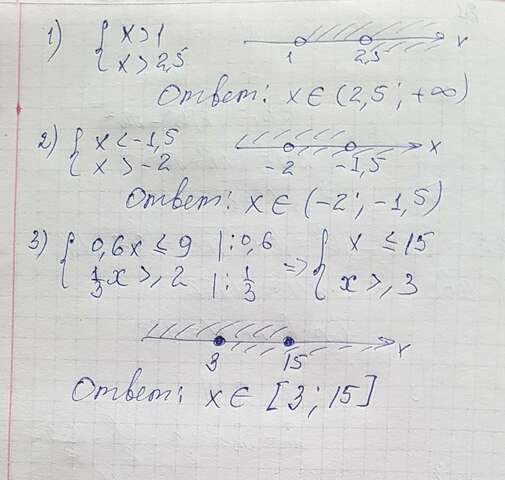 1) { x > 1
x > 2,5
1 2,5 x
Ответ: x ∈ (2,5 ; +∞)
2) { x < -1,5
x > -2
-2 -1,5 x
Ответ: x ∈ (-2 ; -1,5)
3) { 0,6x ≤ 9 | : 0,6 => { x ≤ 15
1/3 x ≥ 2 | : 1/3 x ≥ 3
3 15 x
Ответ: x ∈ [3 ; 15]